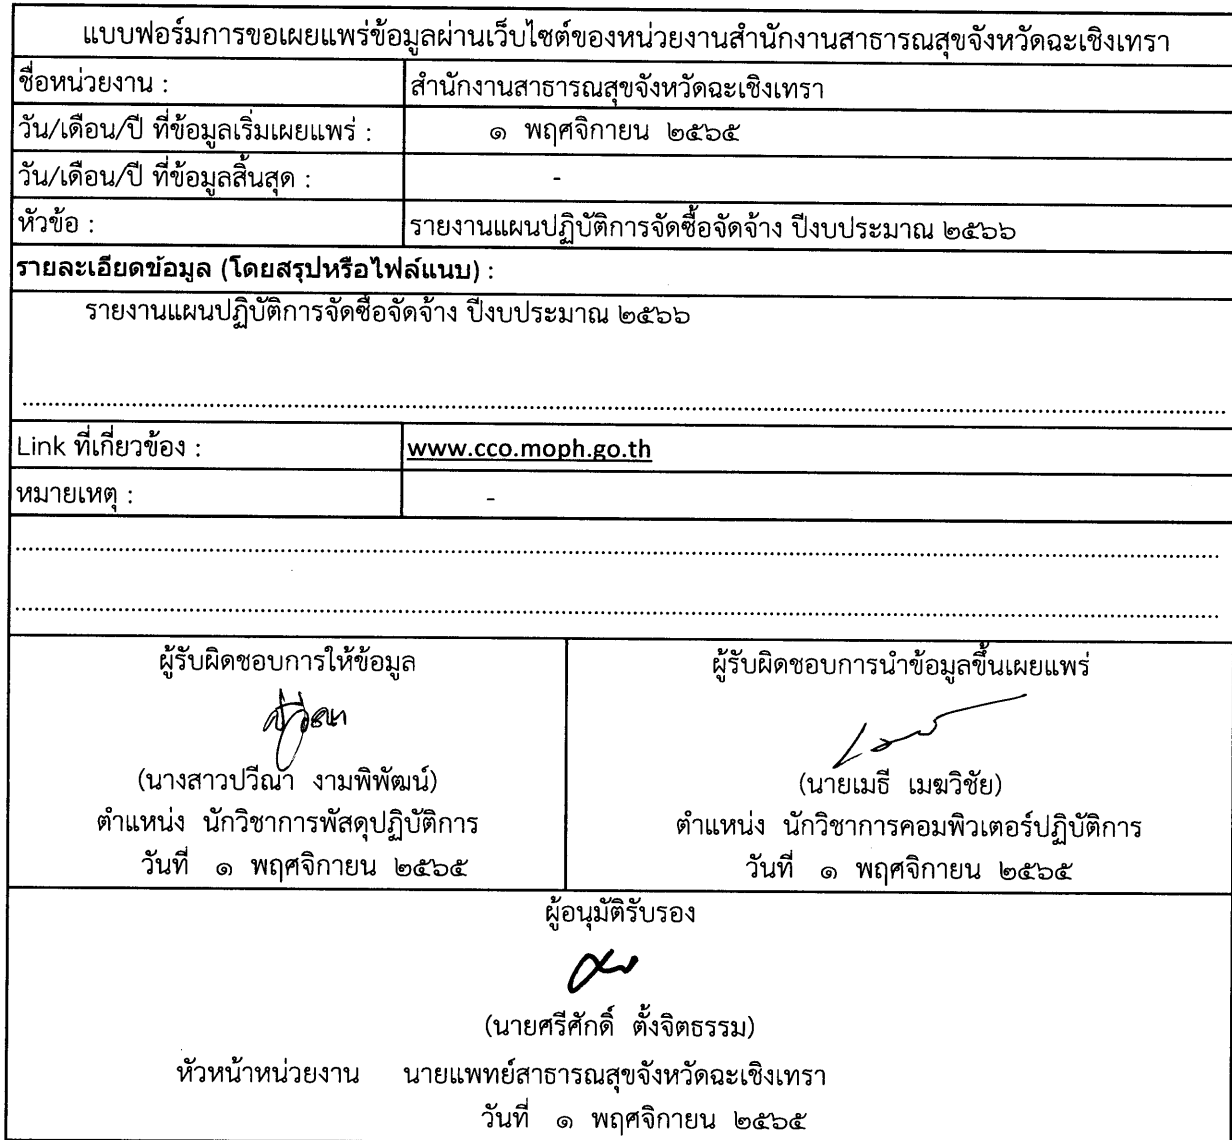 แบบฟอร์มการขอเผยแพร่ข้อมูลผ่านเว็บไซต์ของหน่วยงานสำนักงานสาธารณสุขจังหวัดฉะเชิงเทรา
ชื่อหน่วยงาน : สำนักงานสาธารณสุขจังหวัดฉะเชิงเทรา
วัน/เดือน/ปี ที่ข้อมูลเริ่มเผยแพร่ : ๑ พฤศจิกายน ๒๕๖๕
วัน/เดือน/ปี ที่ข้อมูลสิ้นสุด : -
หัวข้อ : รายงานแผนปฏิบัติการจัดซื้อจัดจ้าง ปีงบประมาณ ๒๕๖๖
รายละเอียดข้อมูล (โดยสรุปหรือไฟล์แนบ) :
รายงานแผนปฏิบัติการจัดซื้อจัดจ้าง ปีงบประมาณ ๒๕๖๖
Link ที่เกี่ยวข้อง : www.cco.moph.go.th
หมายเหตุ : -
ผู้รับผิดชอบการให้ข้อมูล
(นางสาวปวีณา งามพิพัฒน์)
ตำแหน่ง นักวิชาการพัสดุปฏิบัติการ
วันที่ ๑ พฤศจิกายน ๒๕๖๕
ผู้รับผิดชอบการนำข้อมูลขึ้นเผยแพร่
(นายเมธี เมฆวิชัย)
ตำแหน่ง นักวิชาการคอมพิวเตอร์ปฏิบัติการ
วันที่ ๑ พฤศจิกายน ๒๕๖๕
ผู้อนุมัติรับรอง
(นายศรีศักดิ์ ตั้งจิตธรรม)
หัวหน้าหน่วยงาน นายแพทย์สาธารณสุขจังหวัดฉะเชิงเทรา
วันที่ ๑ พฤศจิกายน ๒๕๖๕